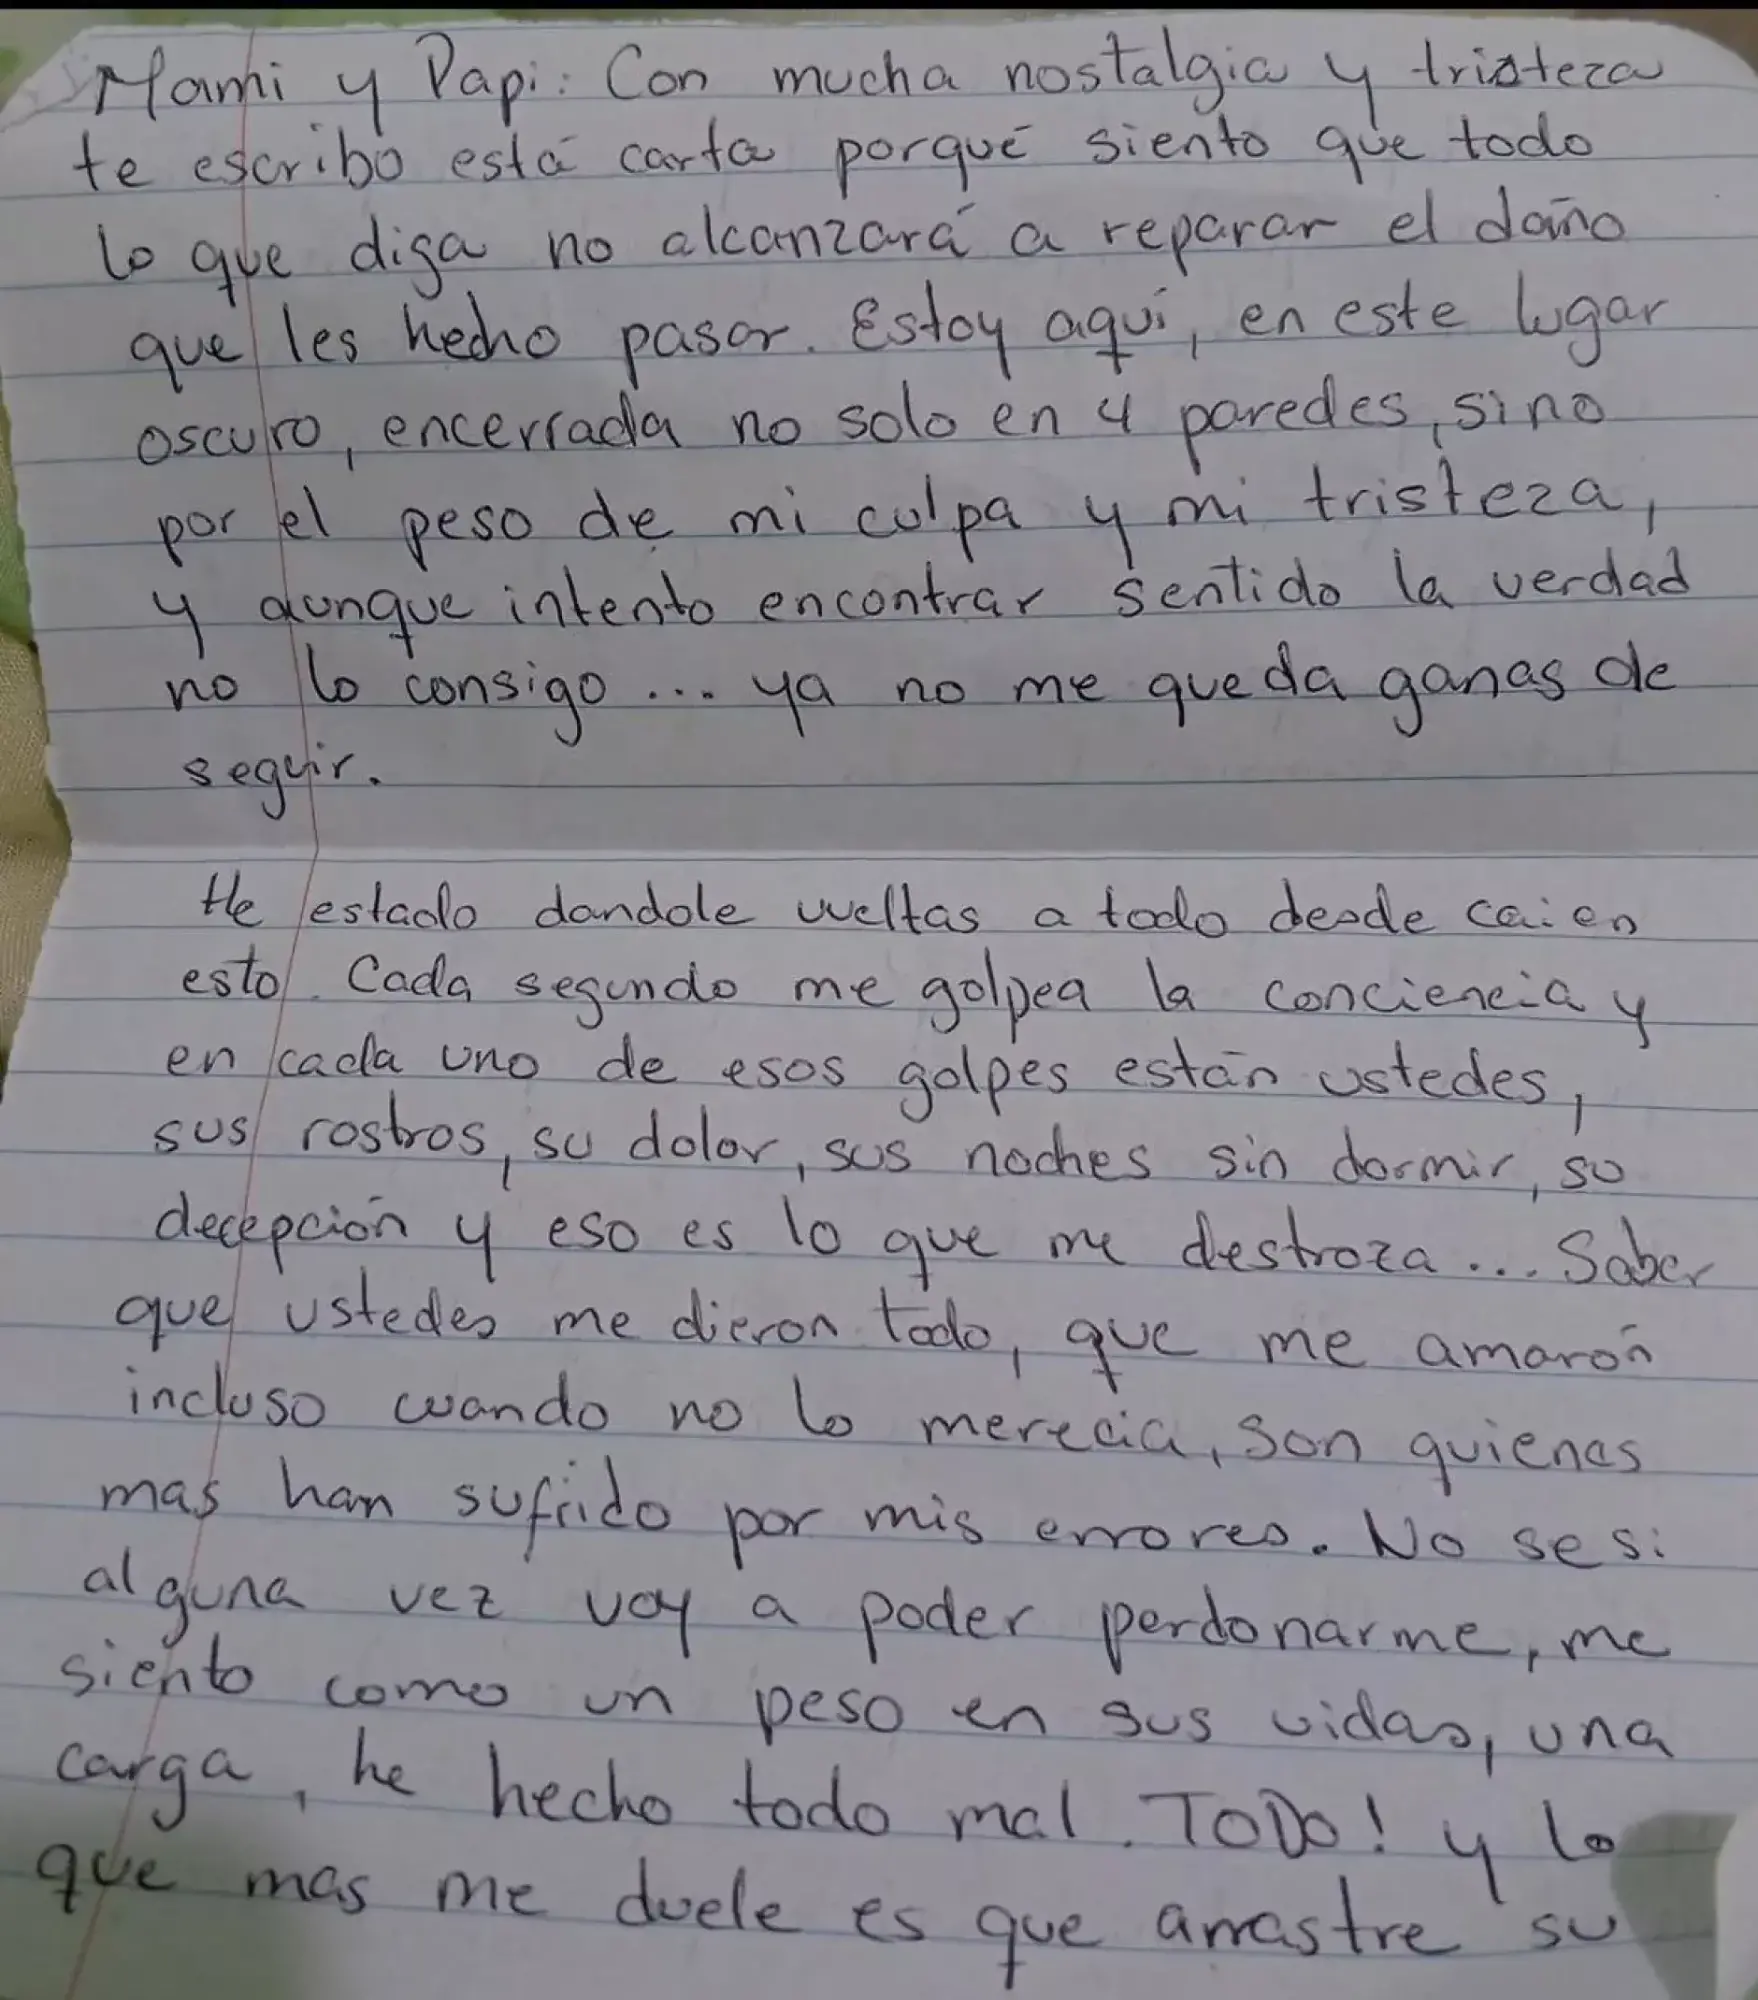 Mami y Papi: Con mucha nostalgia y tristeza
te escribo está carta porqué siento que todo
lo que diga no alcanzará a reparar el daño
que les hecho pasar. Estoy aquí, en este lugar
oscuro, encerrada no solo en 4 paredes, sino
por el peso de mi culpa y mi tristeza,
y aunque intento encontrar sentido la verdad
no lo consigo... ya no me queda ganas de
seguir.
He estado dandole vueltas a todo desde cai en
esto. Cada segundo me golpea la conciencia y
en cada uno de esos golpes están ustedes,
sus rostros, su dolor, sus noches sin dormir, su
decepción y eso es lo que me destroza... Saber
que ustedes me dieron todo, que me amarón
incluso cuando no lo merecia, son quienes
mas han sufrido por mis errores. No se si
alguna vez voy a poder perdonarme, me
siento como un peso en sus vidas, una
carga, he hecho todo mal. TODO! y lo
que mas me duele es que arrastre su